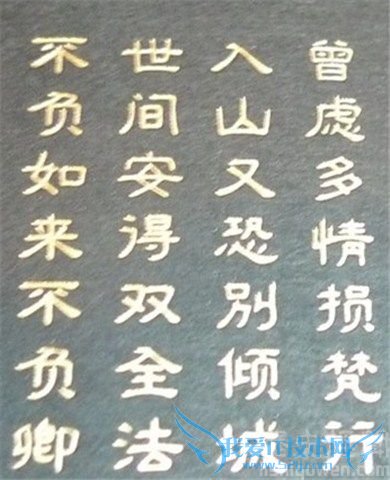 曾虑多情损梵行
入山又恐别倾城
世间安得双全法
不负如来不负卿
我爱IT技术网